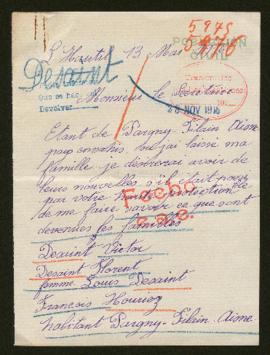 5975
PO CIVIL
L'Hautil 13 Mai 1916
Desaint
Que se hac
Devolver
Monsieur le
28 NOV 1916
Etant de Pargny-Filain Aisne
pays envahis, ou j'ai laissé ma
famille je désirerai avoir de
leurs nouvelles s'il était
par votre
de me faire savoir ce que sont
devenues les familles
Fecho
Desaint Victor
Desaint Florent
femme Louis Desaint
François
habitant Pargny-Filain Aisne